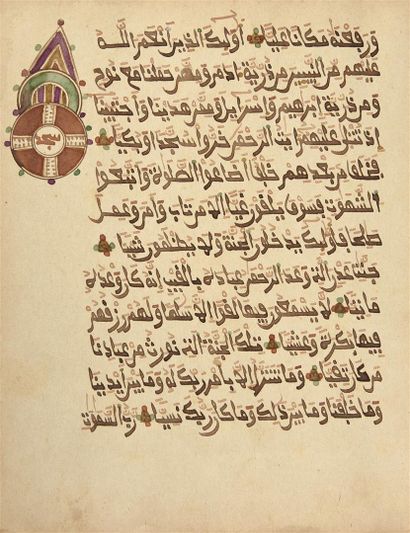 ورفعنه مكانا عليا أوليك الذين أنعم الله
عليهم من النبيين من ذرية ادم وممن حملنا مع نوح
ومن ذرية ابرهيم واسرايل وممن هدينا واجتبينا
إذا تتلى عليهم ايت الرحمن خروا سجدا وبكيا
فخلف من بعدهم خلف اضاعوا الصلوة واتبعوا
الشهوت فسوف يلقون غيا الا من تاب وامن وعمل
صلحا فاوليك يدخلون الجنة ولا يظلمون شيا
جنت عدن التي وعد الرحمن عباده بالغيب إنه كان وعده
ماتيا لا يسمعون فيها لغوا الا سلما ولهم رزقهم
فيها بكرة وعشيا تلك الجنة التي نورث من عبادنا
من كان تقيا وما نتنزل الا بامر ربك له ما بين ايدينا
وما خلفنا وما بين ذلك وما كان ربك نسيا رب السموت